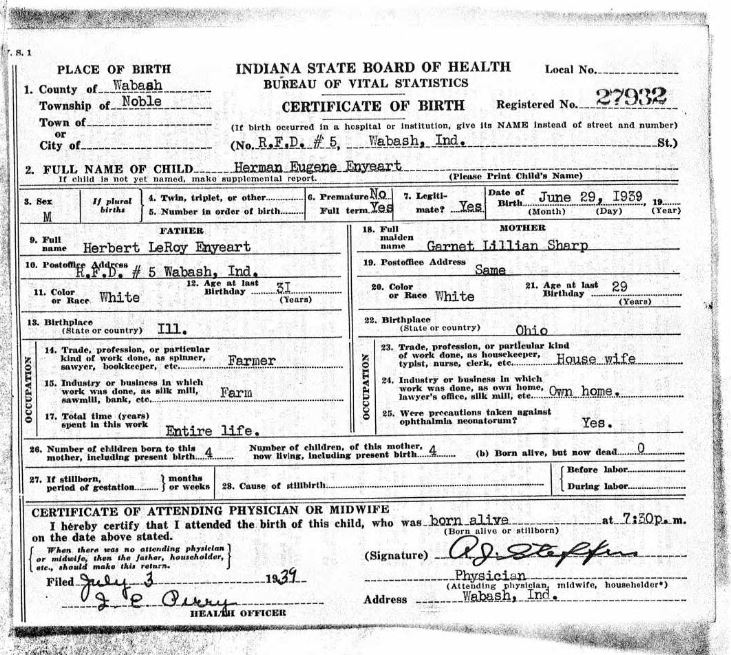 V. S. 1
PLACE OF BIRTH
INDIANA STATE BOARD OF HEALTH
Local No.
1. County of Wabash
BUREAU OF VITAL STATISTICS
Township of Noble
CERTIFICATE OF BIRTH
Registered No. 27932
Town of
or
City of
(If birth occurred in a hospital or institution, give its NAME instead of street and number)
(No. R.F.D. # 5, Wabash, Ind. St.)
2. FULL NAME OF CHILD Herman Eugene Enyeart
If child is not yet named, make supplemental report. (Please Print Child's Name)
3. Sex M
If plural births
4. Twin, triplet, or other
5. Number in order of birth
6. Premature No
Full term Yes
7. Legiti-
mate? Yes
Date of
Birth June 29, 1939 19
(Month) (Day) (Year)
FATHER
9. Full
name Herbert LeRoy Enyeart
10. Postoffice Address
R.F.D. # 5 Wabash, Ind.
11. Color
or Race White
12. Age at last
Birthday 31
(Years)
13. Birthplace
(State or country) Ill.
OCCUPATION
14. Trade, profession, or particular
kind of work done, as spinner,
sawyer, bookkeeper, etc. Farmer
15. Industry or business in which
work was done, as silk mill,
sawmill, bank, etc. Farm
17. Total time (years)
spent in this work
Entire life.
MOTHER
18. Full
maiden
name Garnet Lillian Sharp
19. Postoffice Address
Same
20. Color
or Race White
21. Age at last 29
Birthday
(Years)
22. Birthplace
(State or country) Ohio
OCCUPATION
23. Trade, profession, or particular kind
of work done, as housekeeper,
typist, nurse, clerk, etc. House wife
24. Industry or business in which
work was done, as own home,
lawyer's office, silk mill, etc. Own home.
25. Were precautions taken against
ophthalmia neonatorum? Yes.
26. Number of children born to this
mother, including present birth 4
Number of children, of this mother,
now living, including present birth 4
(b) Born alive, but now dead 0
27. If stillborn,
period of gestation
months
or weeks
28. Cause of stillbirth
Before labor
During labor
CERTIFICATE OF ATTENDING PHYSICIAN OR MIDWIFE
I hereby certify that I attended the birth of this child, who was born alive at 7:30p. m.
on the date above stated. (Born alive or stillborn)
When there was no attending physician
or midwife, then the father, householder,
etc., should make this return.
(Signature)
Filed July 3 1939
Physician
(Attending physician, midwife, householder*)
J E Perry
HEALTH OFFICER
Address Wabash, Ind.